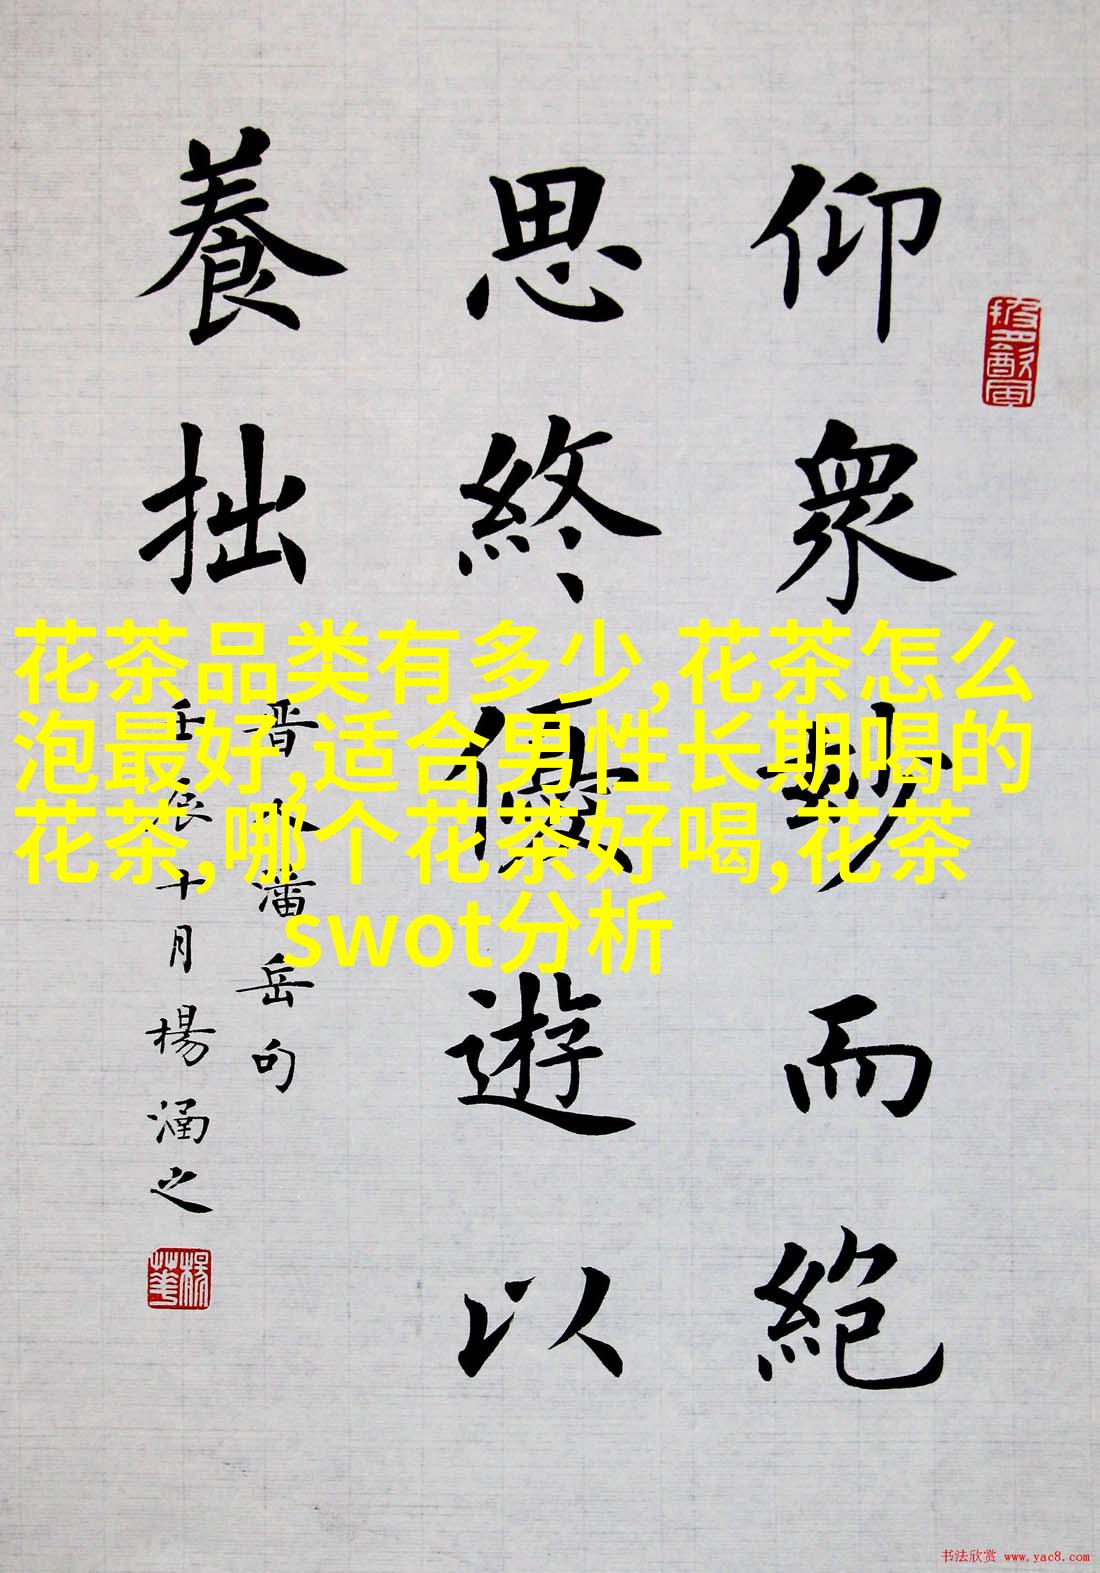 仰衆妙而絶
思終優遊以
養拙
晋人潘岳句
壬辰十月楊涵之
花茶品类有多少,花茶怎么
泡最好,适合男性长期喝的
花茶,哪个花茶好喝,花茶
swot分析
书法欣赏 www.yac8.com